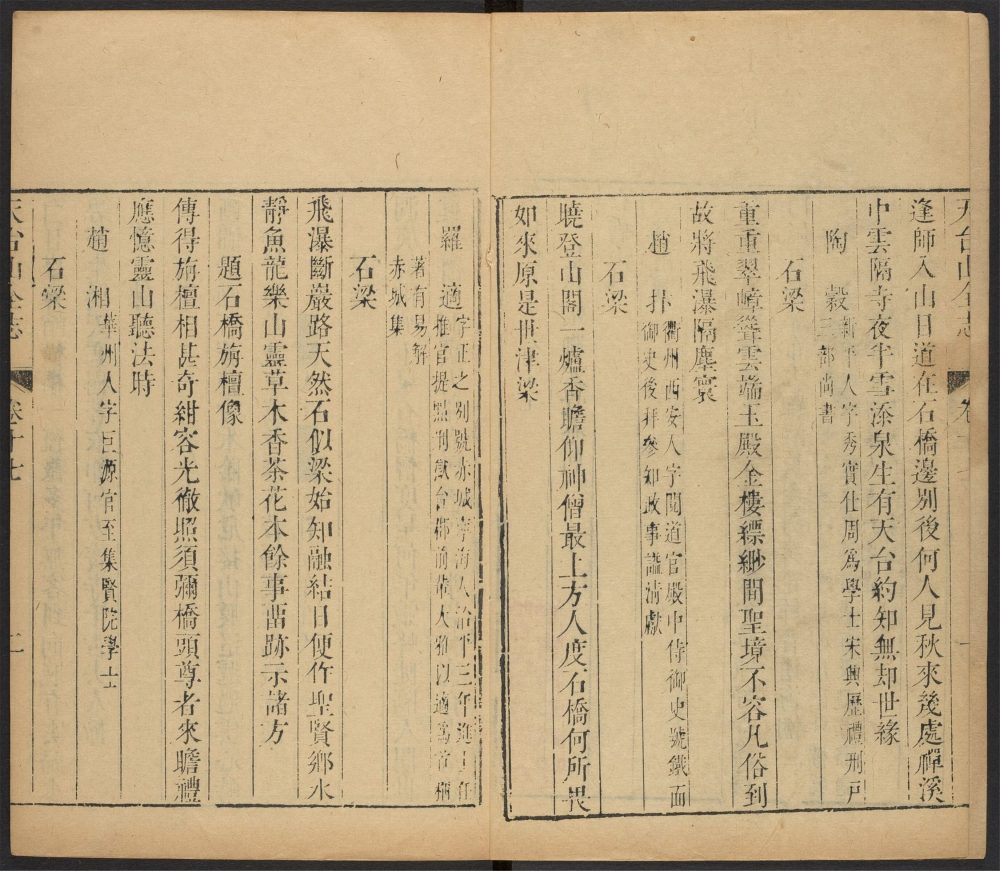 天台山全志 卷十七
逢師入山日道在石橋邊別後何人見秋來幾處禪溪
中雲隔寺夜半雪添泉生有天台約知無却世緣
陶穀 新平人字秀實仕周爲學士宋興歷禮刑戸
三部尚書
石梁
重重翠嶂聳雲端玉殿金樓縹緲間聖境不容凡俗到
故將飛瀑隔塵寰
趙抃 衢州西安人字閱道官嚴中侍御史號鐵面
御史後拜參知政事諡淸獻
石梁
曉登山閣一爐香瞻仰神僧最上方人度石橋何所畏
如來原是世津梁
羅適 字正之別號赤城寧海人治平三年進士任
推官提點刑獄台郡前輩大雅以適爲首稱
著有易解
赤城集
石梁
飛瀑斷巖路天然石似梁始知融結日便作聖賢鄉水
靜魚龍樂山靈草木香茶花本餘事畱跡示諸方
題石橋旃檀像
傳得旃檀相甚奇紺容光徹照須彌橋頭尊者來瞻禮
應憶靈山聽法時
趙湘 華州人字巨源官至集賢院學士
石梁
天台山全志 卷十七 二